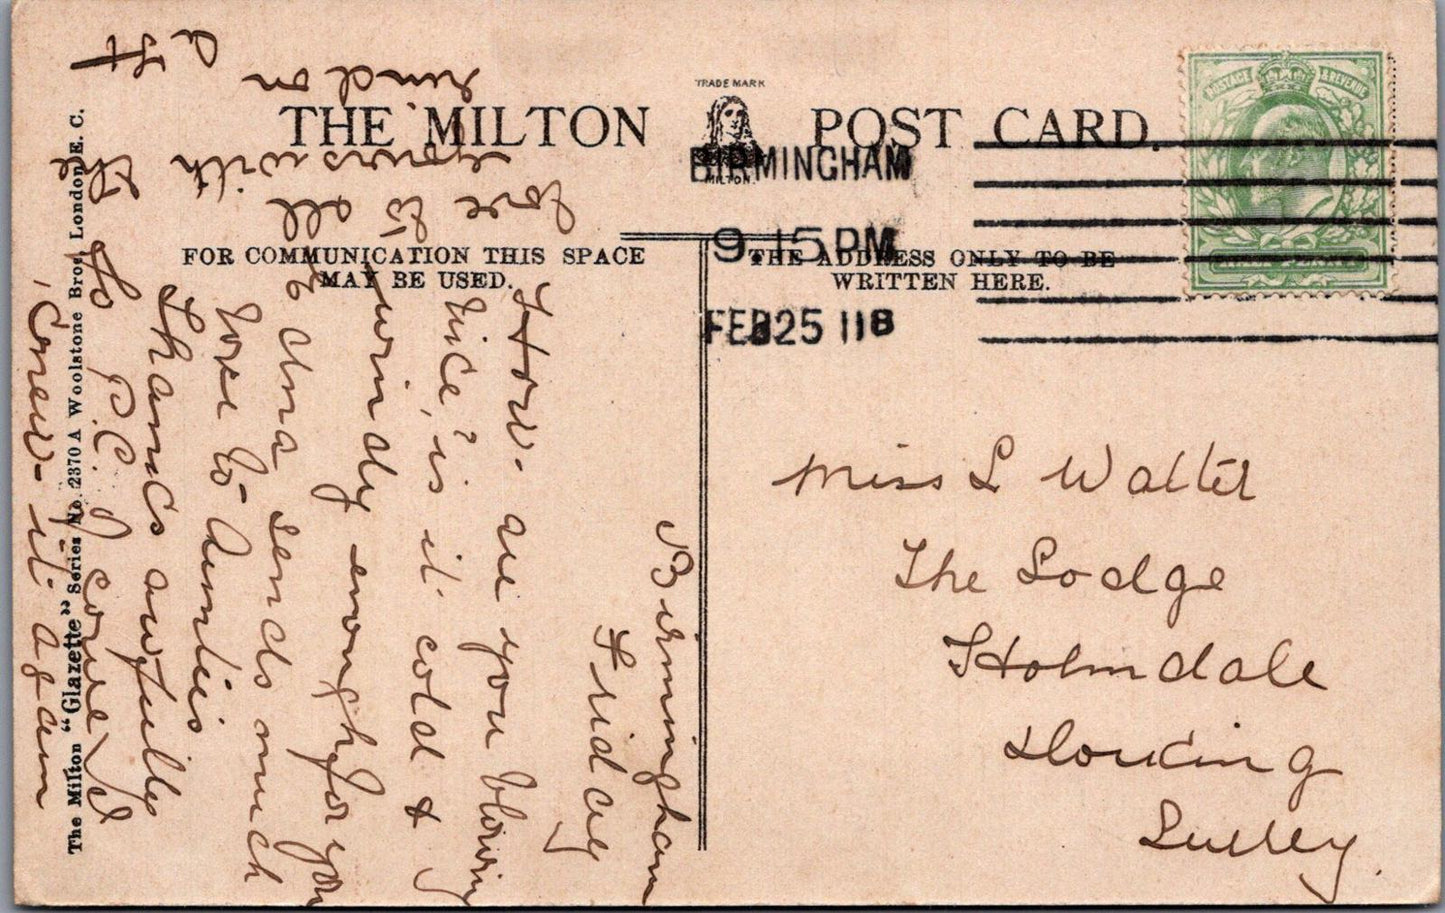 TRADE MARK
THE MILTON POST CARD.
MILTON.
POSTAGE & REVENUE
BIRMINGHAM
9 15 PM
FEB 25 11 8
FOR COMMUNICATION THIS SPACE
MAY BE USED.
THE ADDRESS ONLY TO BE
WRITTEN HERE.
The Milton "Glazette" Series No. 2370A Woolstone Bros. London E. C.
Miss L Walter
The Lodge
Holmdale
Dorking
Surrey.
Birmingham
Friday
How are you blowing
nice, is it cold &
windy enough for you
? Ama sends much
love to Aunties
Thanks awfully
for the P.C. I
come it again
love to all
yours with
and on